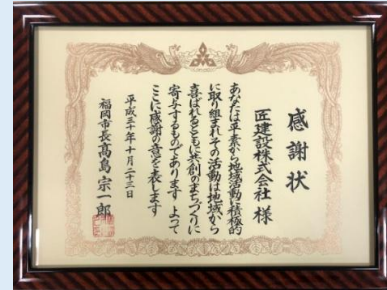 感謝状
匠建設株式会社 様
あなたは平素から地域活動に積極的
に取り組まれその活動は地域から
喜ばれるとともに共創のまちづくりに
寄与するものであります よって
ここに感謝の意を表します
平成三十年十月二十三日
福岡市長 高島 宗一郎